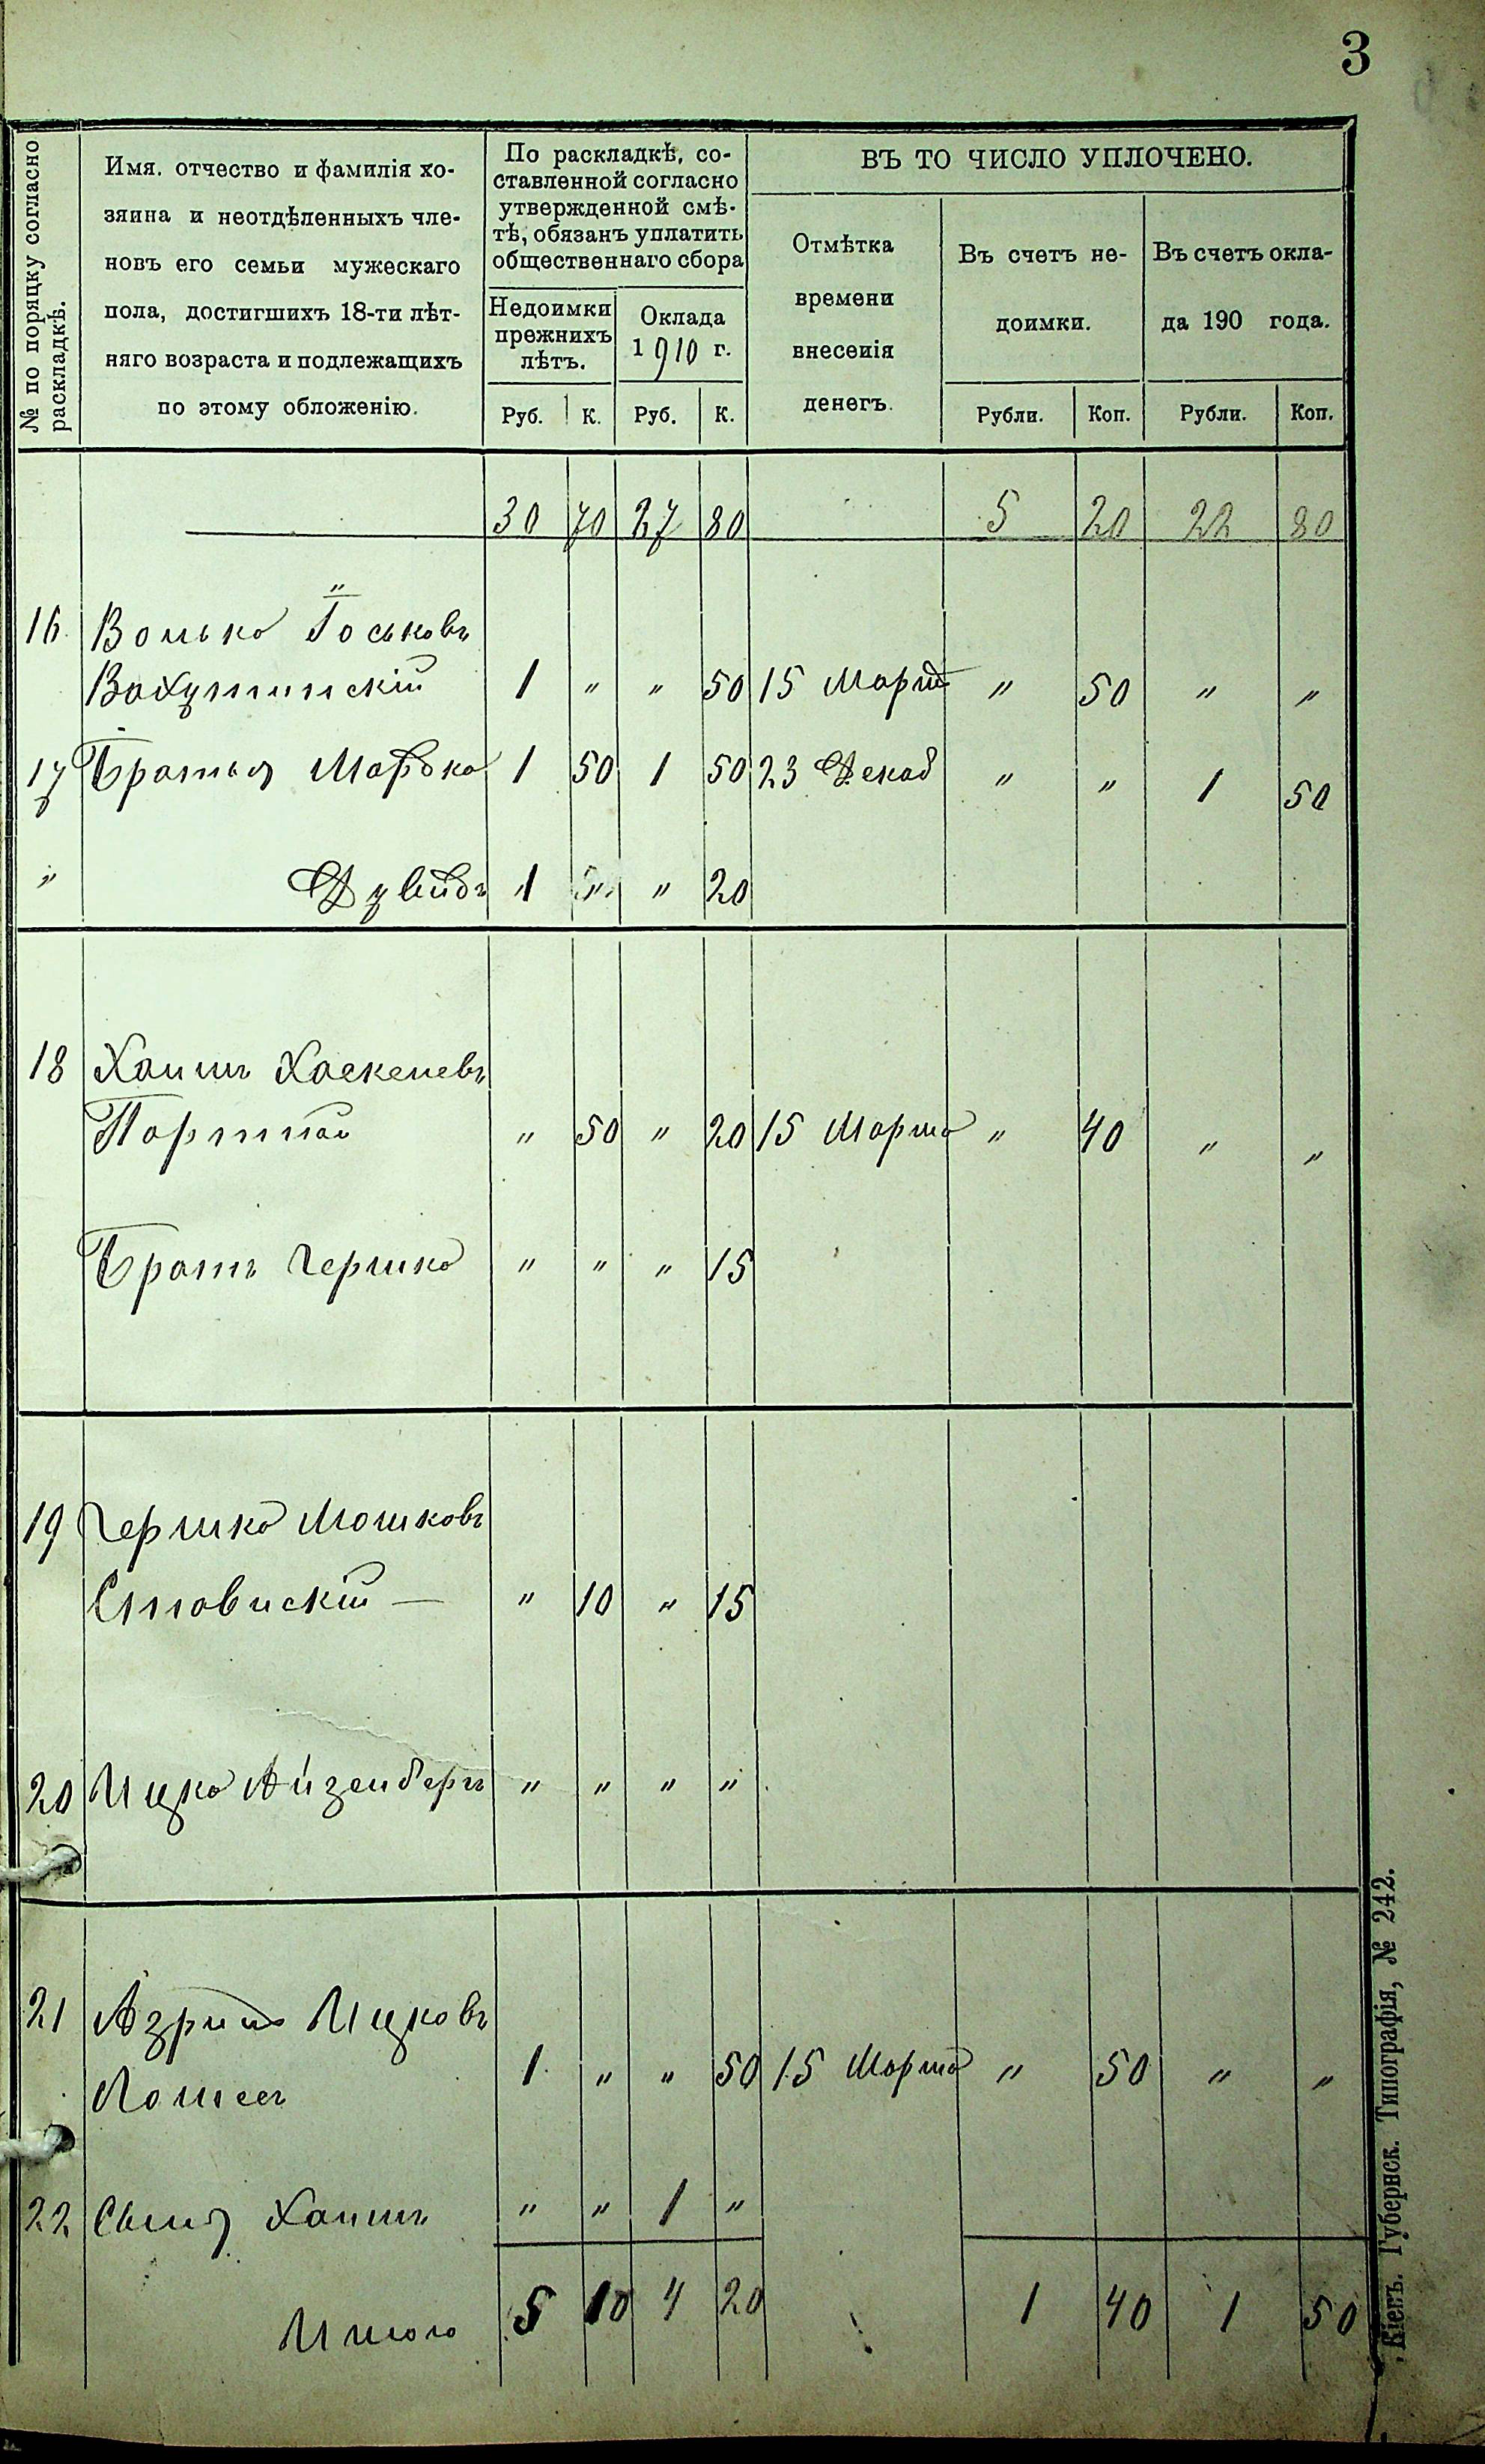 3
№ по поряцку согласно
раскладкѣ.
Имя. отчество и фамилія хо-
зяина и неотдѣленныхъ чле-
новъ его семьи мужескаго
пола, достигшихъ 18-ти лѣт-
няго возраста и подлежащихъ
по этому обложенію.
По раскладкѣ, со-
ставленной согласно
утвержденной смѣ-
тѣ, обязанъ уплатить
общественнаго сбора
Недоимки
прежнихъ
лѣтъ.
Оклада
1910 г.
Руб. К. Руб. К.
ВЪ ТО ЧИСЛО УПЛОЧЕНО.
Отмѣтка
времени
внесенія
денегъ.
Въ счетъ не-
доимки.
Въ счетъ окла-
да 190 года.
Рубли. Коп. Рубли. Коп.
30 70 27 80 5 20 22 80
16 Волько Іоськовъ
1 " " 50 15 Марта " 50 " "
17 Братья Мордко 1 50 1 50 23 Декаб " " 1 50
" 1 " " 20
18 Хаимъ Хаскелевъ
Портной " 50 " 20 15 Марта " 40 " "
Братъ Гершко " " " 15
19 Гершко Мошковъ
Ставискій — " 10 " 15
20 Ицко Айзенбергъ " " " "
21 Азриль Ицковъ
1 " " 50 15 Марта " 50 " "
22 Сынъ Хаимъ " " 1 "
Итого 5 10 4 20 1 40 1 50
Кіевъ. Губернск. Типографія, № 242.